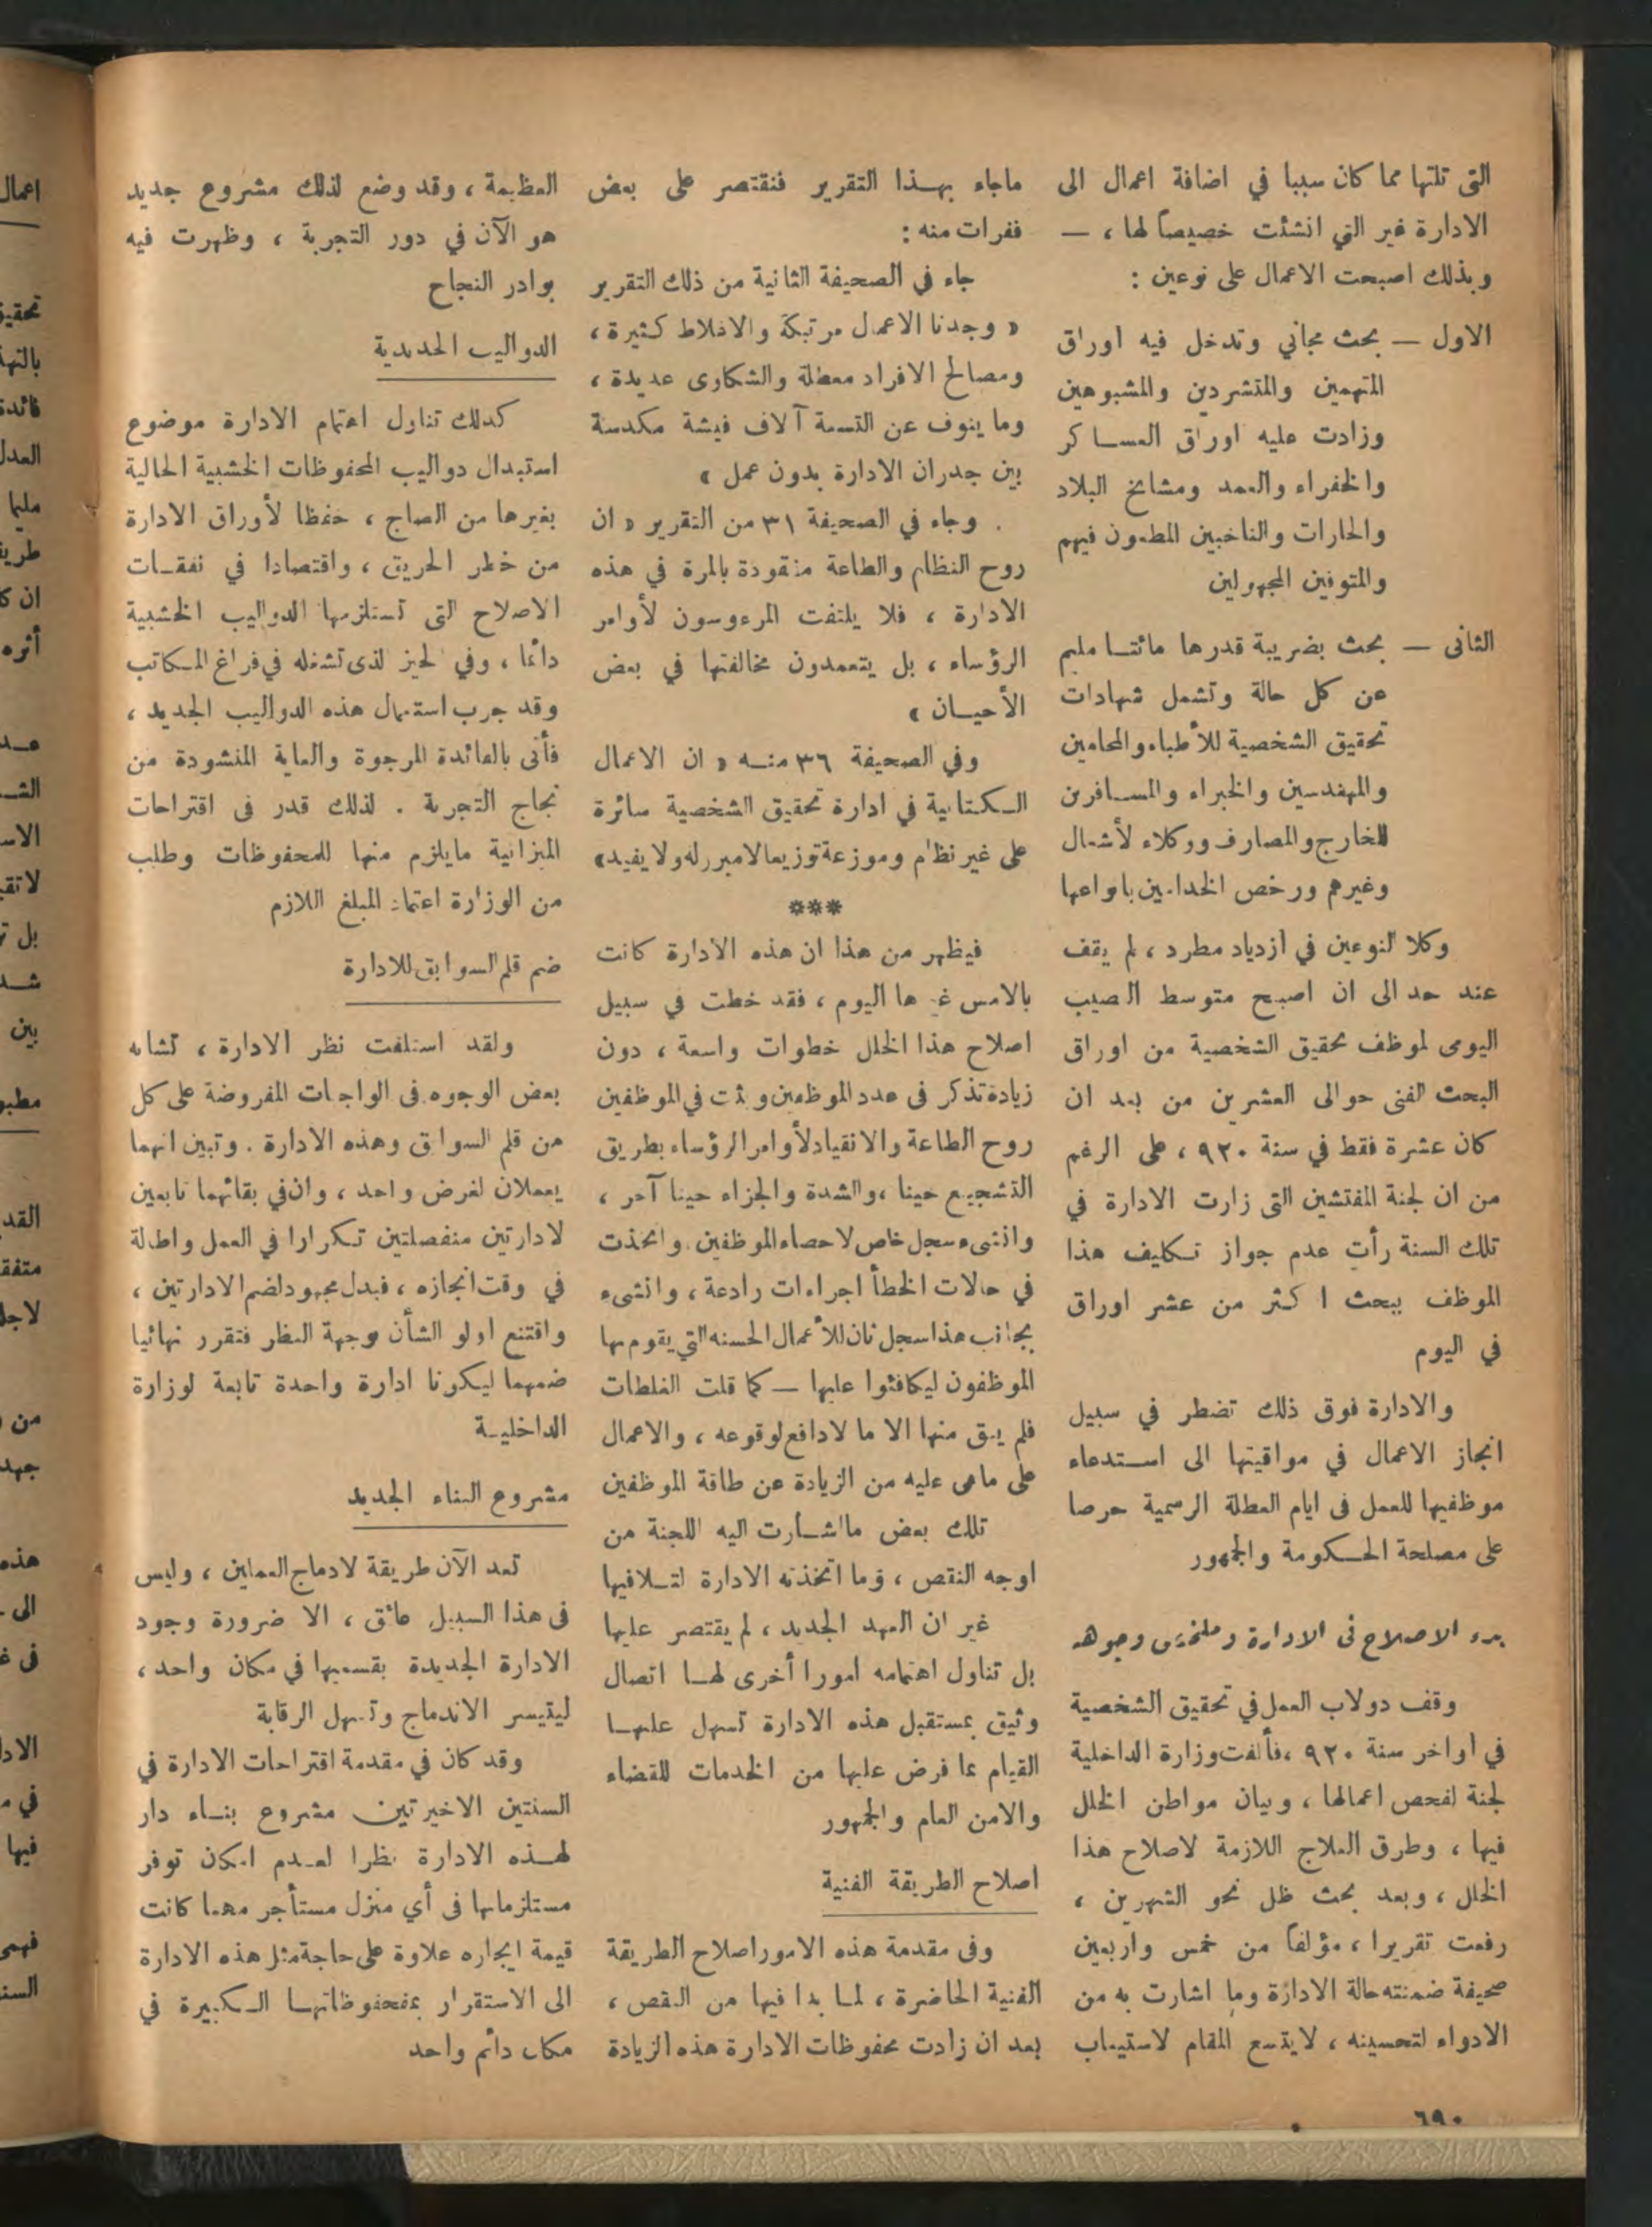 التى تلتها مما كان سببا في اضافة اعمال الى
الادارة غير التي انشئت خصيصاً لها ، —
وبذلك اصبحت الاعمال على نوعين :
الاول — بحث مجاني وتدخل فيه اوراق
المتهمين والمتشردين والمشبوهين
وزادت عليه اوراق العساكر
والخفراء والعمد ومشايخ البلاد
والحارات والناخبين المطعون فيهم
والمتوفين المجهولين
الثانى — بحث بضريبة قدرها مائتا مليم
عن كل حالة وتشمل شهادات
تحقيق الشخصية للأطباء والمحامين
والمهندسين والخبراء والمسافرين
للخارج والمصارف ووكلاء لأشغال
وغيرهم ورخص الخدامين بانواعها
وكلا النوعين في ازدياد مطرد ، لم يقف
عند حد الى ان اصبح متوسط النصيب
اليومى لموظف تحقيق الشخصية من اوراق
البحث الفنى حوالى العشرين من بعد ان
كان عشرة فقط في سنة ٩٢٠ ، على الرغم
من ان لجنة المفتشين التى زارت الادارة في
تلك السنة رأت عدم جواز تكليف هذا
الموظف ببحث اكثر من عشر اوراق
في اليوم
والادارة فوق ذلك تضطر في سبيل
انجاز الاعمال في مواقيتها الى استدعاء
موظفيها للعمل فى ايام العطلة الرسمية حرصا
على مصلحة الحكومة والجمهور
بدء الاصلاح فى الادارة وملخص وجوهه
وقف دولاب العمل في تحقيق الشخصية
في أواخر سنة ٩٢٠ ، فألفت وزارة الداخلية
لجنة لفحص اعمالها ، وبيان مواطن الخلل
فيها ، وطرق العلاج اللازمة لاصلاح هذا
الخلل ، وبعد بحث ظل نحو الشهرين ،
رفعت تقريرا ، مؤلفاً من خمس واربعين
صحيفة ضمنته حالة الادارة وما اشارت به من
الادواء لتحسينه ، لا يتسع المقام لاستيعاب
ماجاء بهذا التقرير فنقتصر على بعض
فقرات منه :
جاء في الصحيفة الثانية من ذلك التقرير
« وجدنا الاعمال مرتبكة والاغلاط كثيرة ،
ومصالح الافراد معطلة والشكاوى عديدة ،
وما ينوف عن التسعة آلاف فيشة مكدسة
بين جدران الادارة بدون عمل »
وجاء في الصحيفة ٣١ من التقرير « ان
روح النظام والطاعة مفقودة بالمرة في هذه
الادارة ، فلا يلتفت المرءوسون لأوامر
الرؤساء ، بل يتعمدون مخالفتها في بعض
الأحيان »
وفي الصحيفة ٣٦ منه « ان الاعمال
الكتابية في ادارة تحقيق الشخصية سائرة
على غير نظام وموزعة توزيعا لامبرر له ولا يفيد »
***
فيظهر من هذا ان هذه الادارة كانت
بالامس غيرها اليوم ، فقد خطت في سبيل
اصلاح هذا الخلل خطوات واسعة ، دون
زيادة تذكر فى عدد الموظفين وبثت في الموظفين
روح الطاعة والانقياد لأوامر الرؤساء بطريق
التشجيع حينا ، والشدة والجزاء حينا آخر ،
وانشىء سجل خاص لاحصاء الموظفين . واتخذت
في حالات الخطأ اجراءات رادعة ، وانشىء
بجانب هذا سجل ثان للأعمال الحسنه التي يقوم بها
الموظفون ليكافئوا عليها — كما قلت الغلطات
فلم يبق منها الا ما لادافع لوقوعه ، والاعمال
على ماهى عليه من الزيادة عن طاقة الموظفين
تلك بعض ما اشارت اليه اللجنة من
اوجه النقص ، وما اتخذته الادارة لتلافيها
غير ان العهد الجديد ، لم يقتصر عليها
بل تناول اهتمامه امورا أخرى لها اتصال
وثيق بمستقبل هذه الادارة تسهل عليها
القيام بما فرض عليها من الخدمات للقضاء
والامن العام والجمهور
اصلاح الطريقة الفنية
وفى مقدمة هذه الامور اصلاح الطريقة
الفنية الحاضرة ، لما بدا فيها من النقص ،
بعد ان زادت محفوظات الادارة هذه الزيادة
العظيمة ، وقد وضع لذلك مشروع جديد
هو الآن في دور التجربة ، وظهرت فيه
بوادر النجاح
الدواليب الحديدية
كذلك تناول اهتمام الادارة موضوع
استبدال دواليب المحفوظات الخشبية الحالية
بغيرها من الصاج ، حفظا لأوراق الادارة
من خطر الحريق ، واقتصادا في نفقات
الاصلاح التى تستلزمها الدواليب الخشبية
دائما ، وفي لحيز لذى تشغله في فراغ المكاتب
وقد جرب استعمال هذه الدواليب الجديد ،
فأتى بالفائدة المرجوة والغاية المنشودة من
نجاح التجربة . لذلك قدر فى اقتراحات
الميزانية مايلزم منها للمحفوظات وطلب
من الوزارة اعتماد المبلغ اللازم
ضم قلم السوابق للادارة
ولقد استلفت نظر الادارة ، تشابه
بعض الوجوه فى الواجبات المفروضة على كل
من قلم السوابق وهذه الادارة . وتبين انهما
يعملان لغرض واحد ، وان في بقائهما تابعين
لادارتين منفصلتين تكرارا في العمل واطالة
في وقت انجازه ، فبدل مجهود لضم الادارتين ،
واقتنع اولو الشأن بوجهة النظر فتقرر نهائيا
ضمهما ليكونا ادارة واحدة تابعة لوزارة
الداخلية
مشروع البناء الجديد
تعد الآن طريقة لادماج العملين ، وليس
فى هذا السبيل عائق ، الا ضرورة وجود
الادارة الجديدة بقسميها في مكان واحد ،
ليتيسر الاندماج وتسهل الرقابة
وقد كان في مقدمة اقتراحات الادارة في
السنتين الاخيرتين مشروع بناء دار
لهذه الادارة نظرا لعدم امكان توفر
مستلزماتها فى أي منزل مستأجر مهما كانت
قيمة ايجاره علاوة على حاجة مثل هذه الادارة
الى الاستقرار بمحفوظاتها الكبيرة في
مكان دائم واحد
٦٩٠